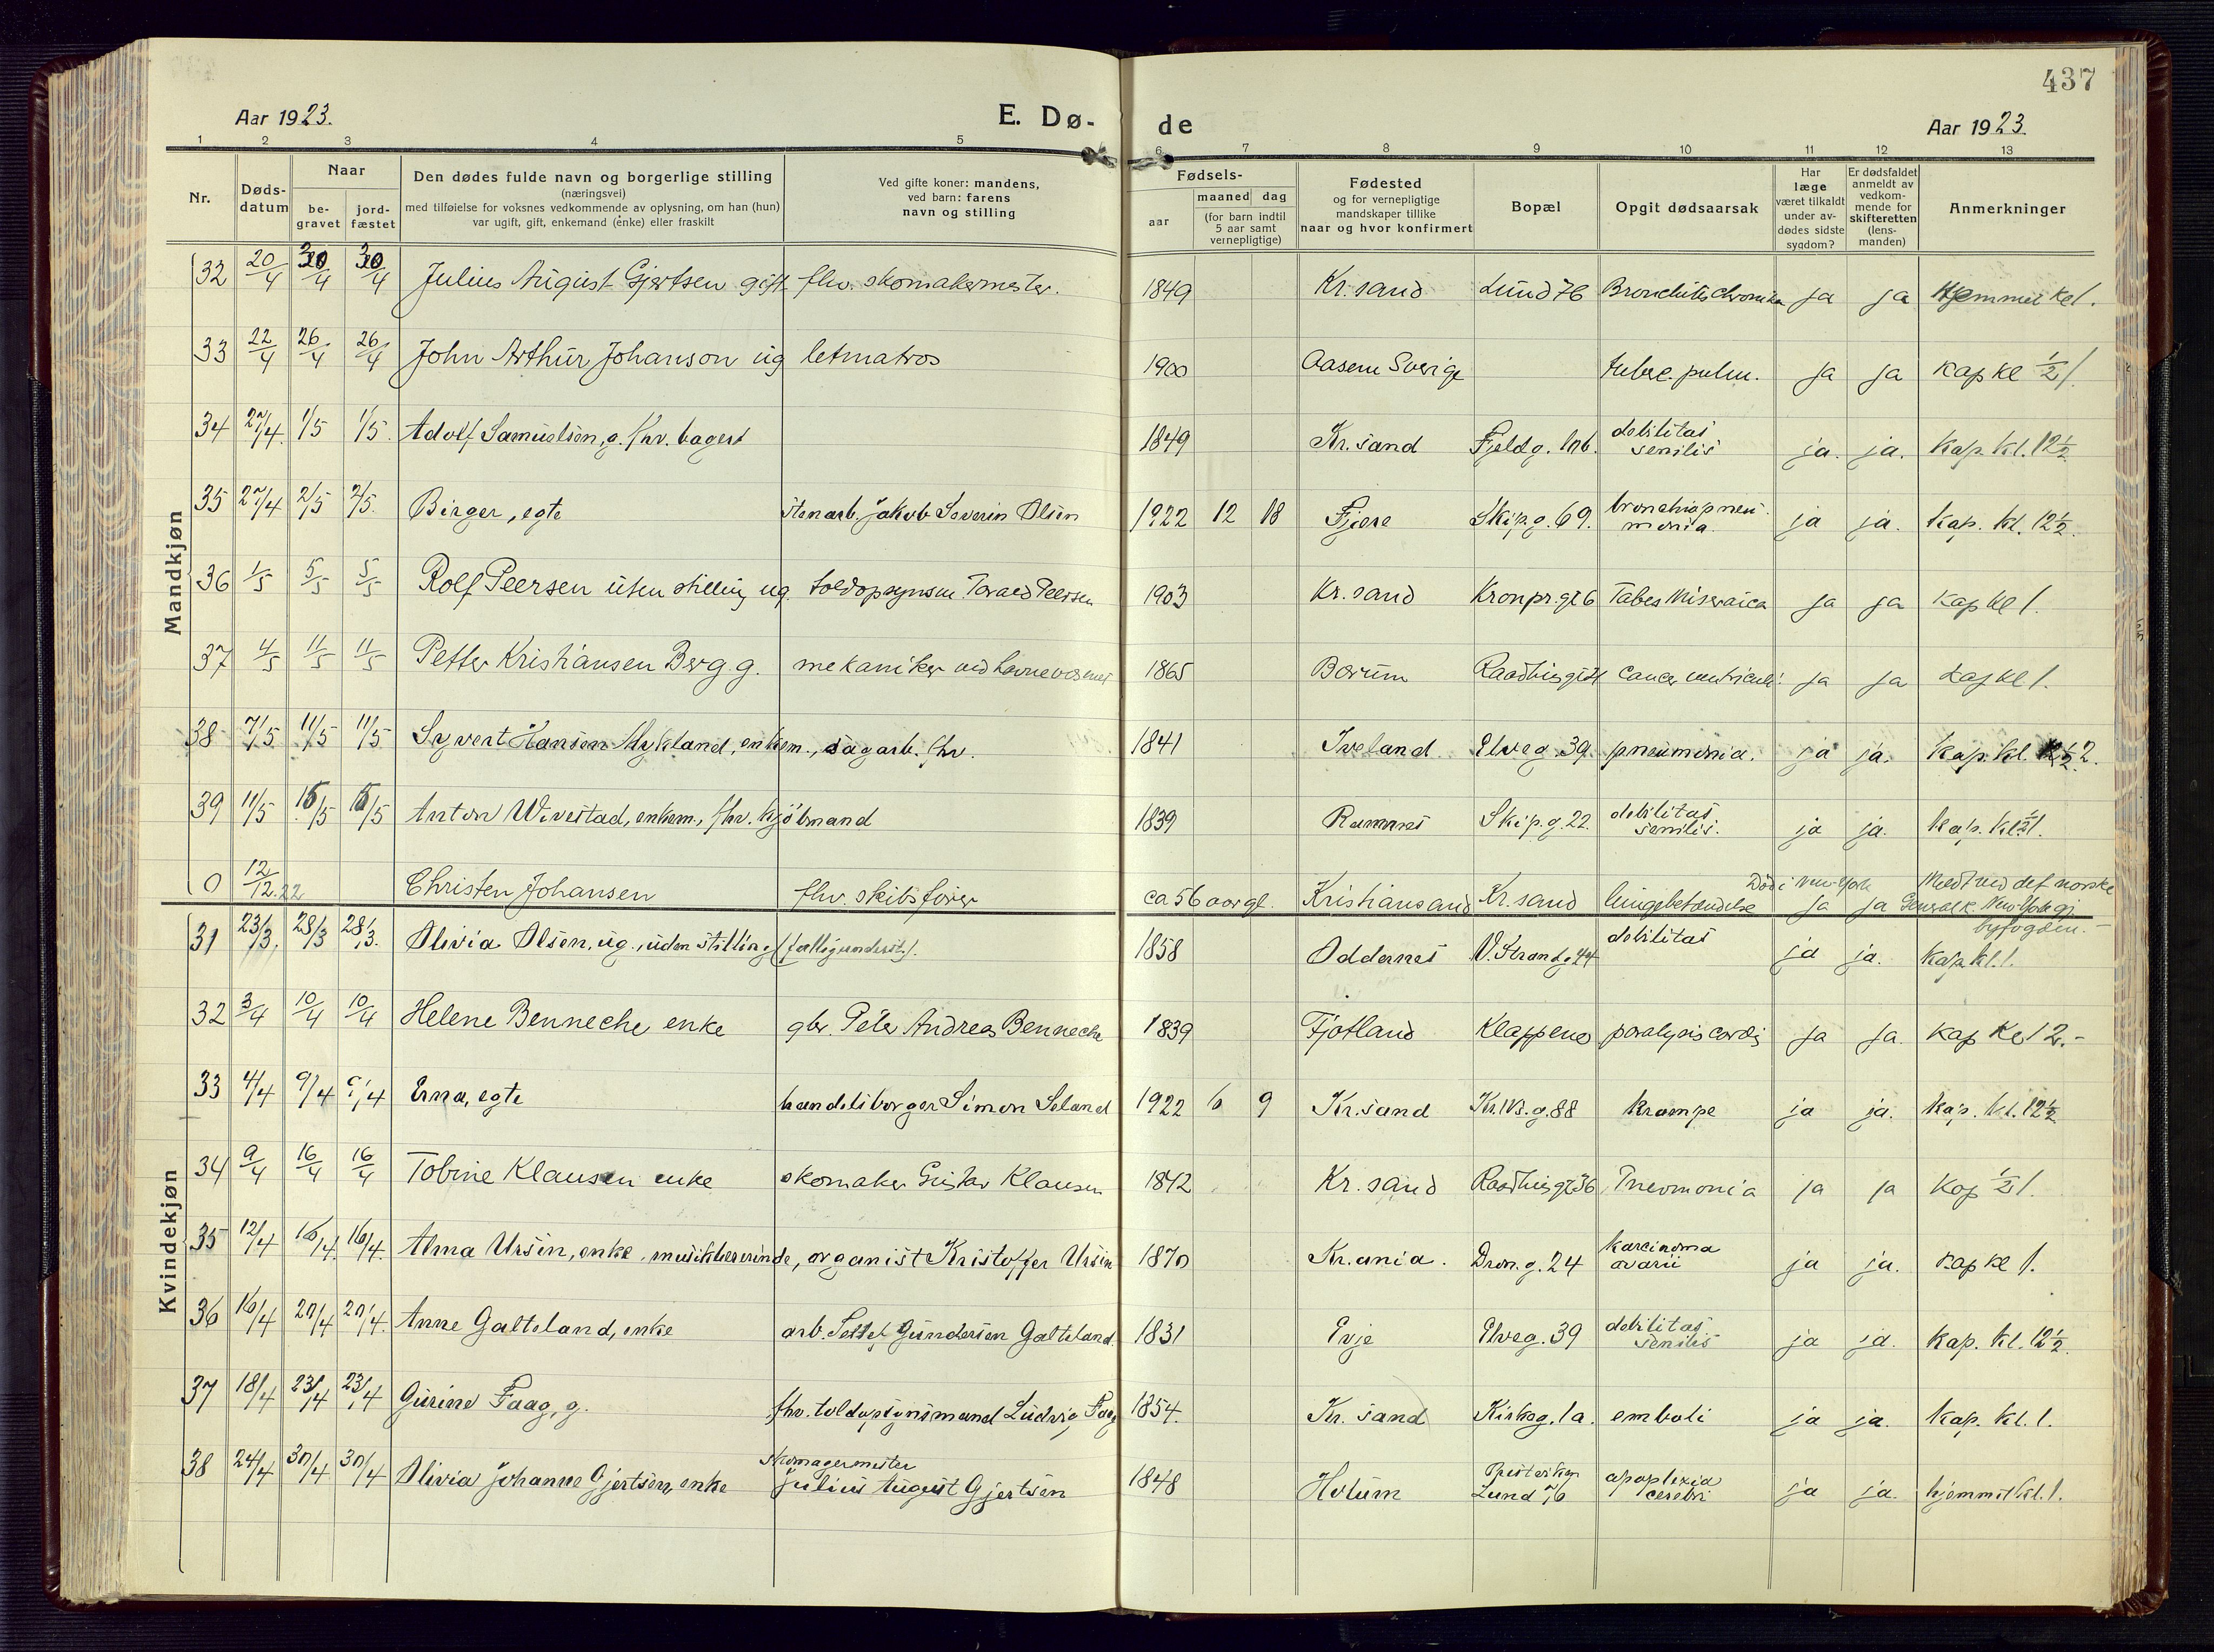 437
Aar 1923.
E. Dø-
de
Aar 1923.
1 2 3 4 5 6 7 8 9 10 11 12 13
Nr.
Døds-
datum
Naar
be-
gravet
jord-
fæstet
Den dødes fulde navn og borgerlige stilling
(næringsvei)
med tilføielse for voksnes vedkommende av oplysning, om han (hun)
var ugift, gift, enkemand (enke) eller fraskilt
Ved gifte koner: mandens,
ved barn: farens
navn og stilling
Fødsels-
aar
maaned dag
(for barn indtil
5 aar samt
vernepligtige)
Fødested
og for vernepligtige
mandskaper tillike
naar og hvor konfirmert
Bopæl
Opgit dødsaarsak
Har
læge
været tilkaldt
under av-
dødes sidste
sygdom?
Er dødsfaldet
anmeldt av
vedkom-
mende for
skifteretten
(lens-
manden)
Anmerkninger
Mandkjøn
32 20/4 30/4 30/4 Julius August Gjertsen gift fhv. skomakermester. 1849 Kr.sand Lund 76 Bronchitis chronika ja ja Hjemmet kl 1.
33 22/4 26/4 26/4 John Arthur Johanson ug letmatros 1900 Aasene Sverige tuberc. pulm. ja ja Kap kl ½ 1.
34 27/4 1/5 1/5. Adolf Samuelsen, g. fhv. bagest 1849 Kr.sand Fjeldg. debilitas senilis ja. ja. Kap. kl. 12½
35 27/4 2/5 2/5. Birger, egte Stenarb. Jakob Severin Olsen 1922 12 18 Fjære Skipg. 69. bronchiapneumonia ja ja. Kap. kl. 12½.
36 1/5 5/5 5/5 Rolf Peersen uten stilling ug. toldopsynsm. Peersen 1903 Kr.sand Kronpr.gt 6 Tabes Miseraica ja ja Kap kl 1.
37 4/5 11/5 11/5 Petter Kristiansen Berg g. mekaniker ved havnevæsenet 1865 Bærum cancer ventriculi ja ja Kap kl 1.
38 7/5 11/5 11/5 Syvert Hansen Mykland, enkem., sagarb. fhv. 1841 Iveland Elveg. 39. pneumonia. ja ja. Kap. kl.
39 11/5 15/5 15/5 Anton Wivestad, enkem., fhv. kjöbmand 1839 Ramnes Skip.g. 22. debilitas senilis. ja ja. Kap. kl ½ 1.
0 12/12.22 Christen Johansen fhv. skibsfører ca 56 aar gl. Kristiansand Kr.sand lungebetændelse Død i New-York ja ja Meldt ved det norske Generalk. New-York gj. byfogden.-
Kvindekjøn
31 23/3. 28/3 28/3. Olivia Olsen, ug., uden stilling (fattigunderst.). 1858 Oddernes V. Strandg. 44 debilitas ja ja. Kap. kl. 1.
32 3/4 10/4 10/4 Helene Benneche enke gbr. Peter Andreas Benneche 1839 Fjotland Klappene paralysis cordis ja ja. Kap Kl 12.-
33 4/4 9/4 9/4 Erna, egte handelsborger Simon Seland 1922 6 9 Kr.sand Kr.IVs.g. 88 krampe ja ja. Kap. kl. 12½
34 9/4 16/4 16/4 Tobine Klausen enke skomaker Gustav Klausen 1842 Kr.sand Raadhusgt 36 Pnevmonia ja ja Kap ½ 1.
35 12/4 16/4. 16/4. Alma Ursin, enke, musiklærerinde, organist Kristoffer Ursin 1870 Kr.ania. Dron.g. 24 karcinoma ovarii ja ja. Kap kl 1.
36 16/4 20/4 20/4. Anne Galteland, enke arb. Gundersen Galteland. 1831 Evje Elveg. 39 debilitas senilis ja ja. Kap. kl. 12½
37 18/4 23/4 23/4 Gurine Faag, g. fhv. toldopsynsmand Ludvig Faag 1854. Kr.sand Kirkeg. 1a. emboli ja ja. Kap. kl. 1.
38 24/4 30/4 30/4 Olivia Johanne Gjertsen, enke Skomagermester Julius August Gjertsen 1848 Holum Lund 76 apoplexia cerebri ja ja. hjemmet kl. 1.